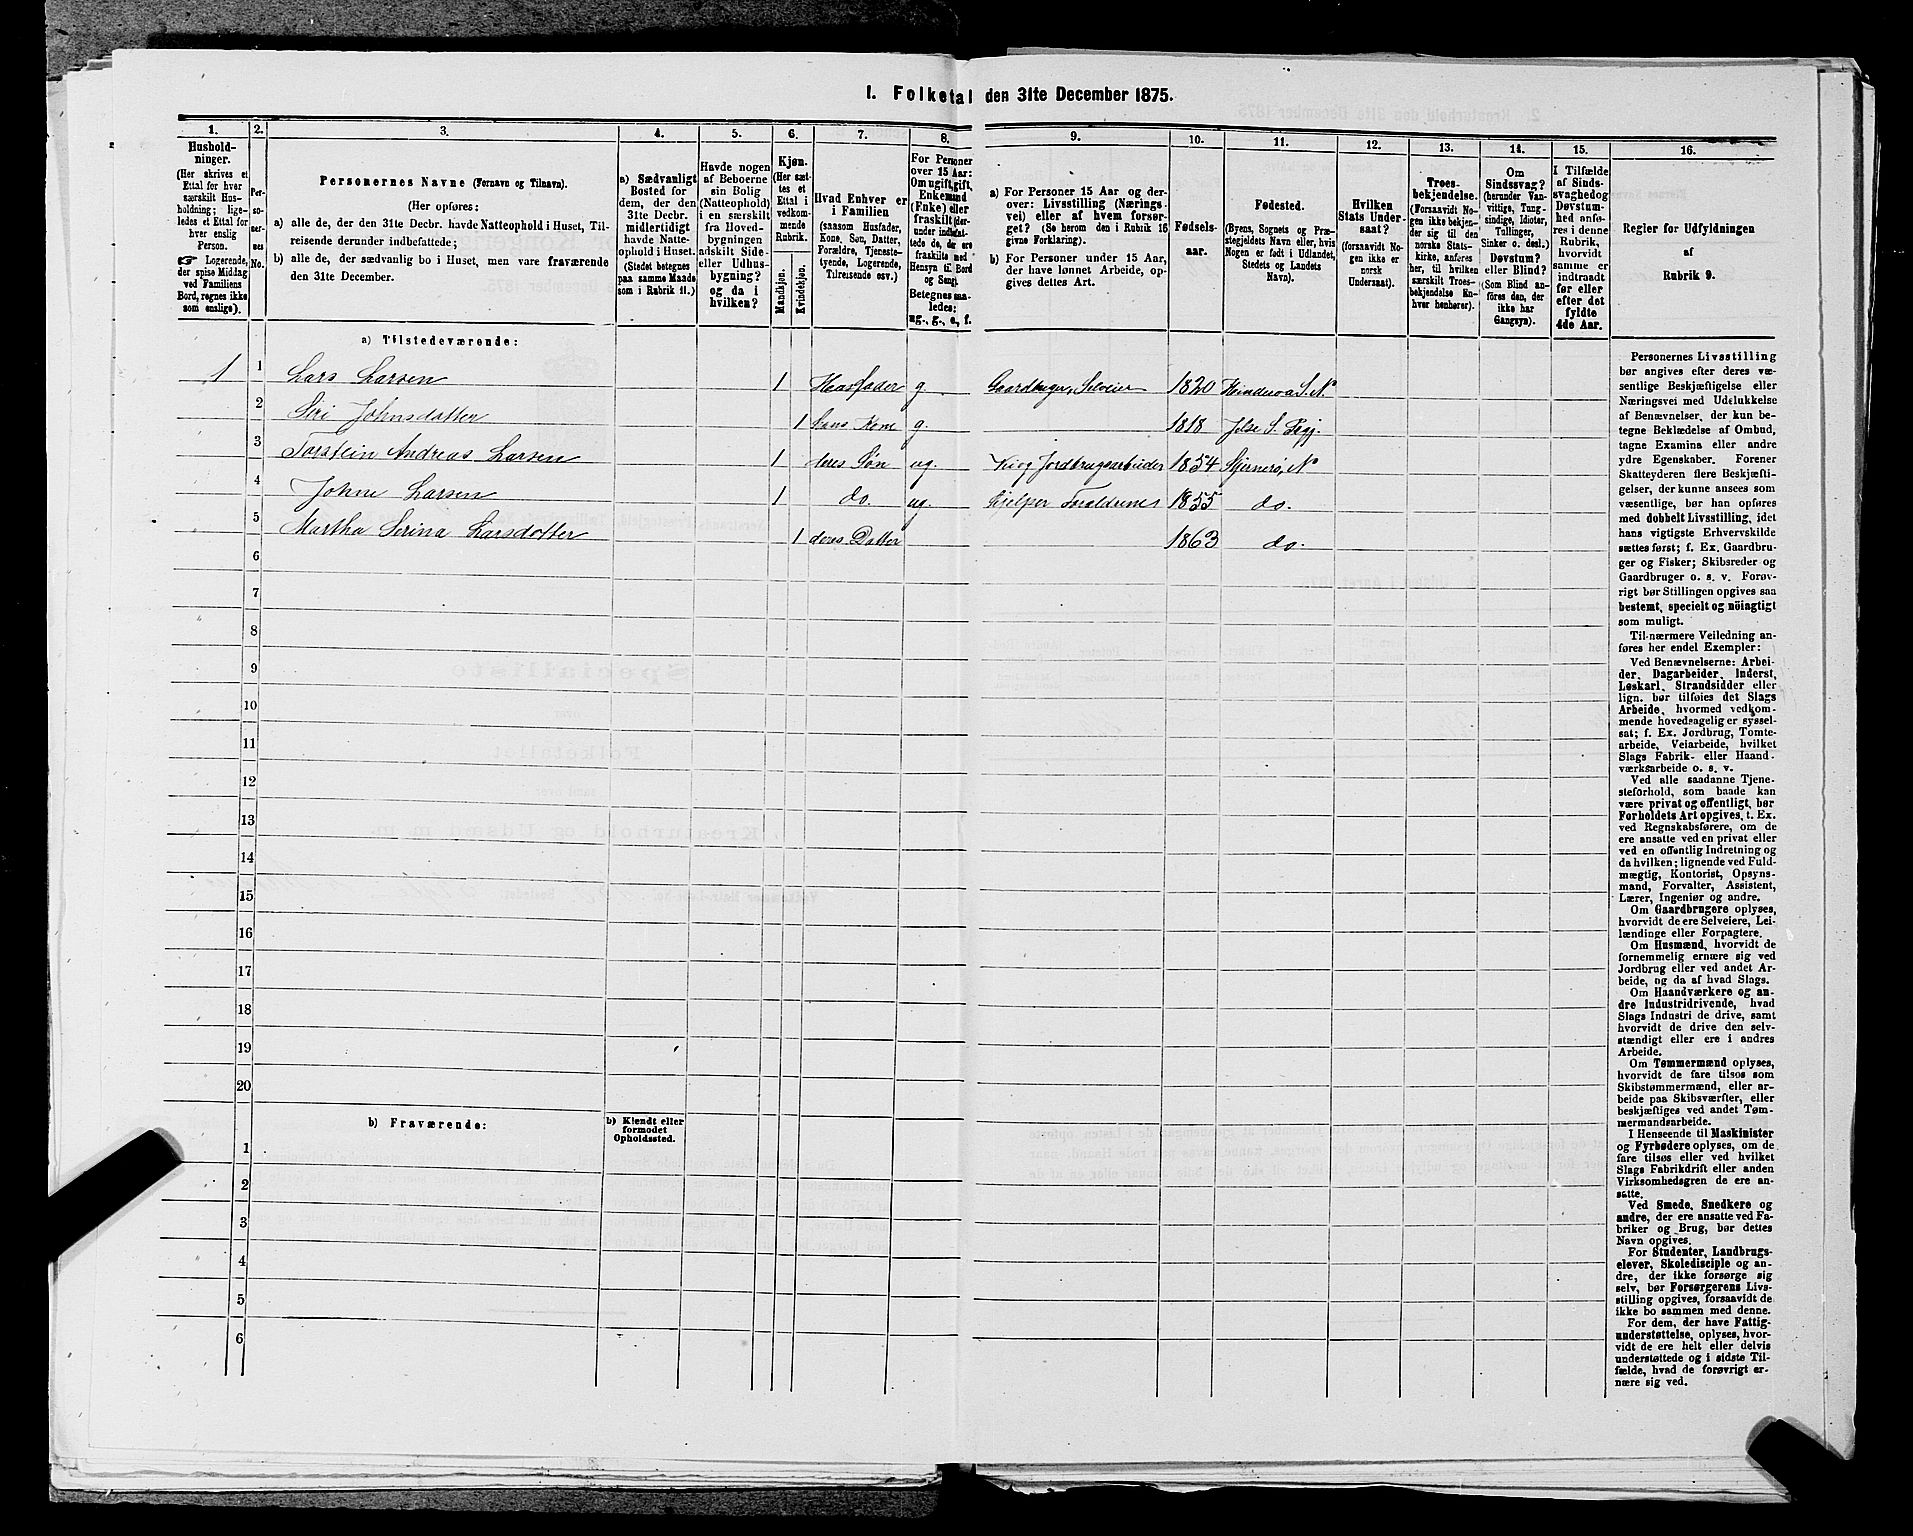 I. Folketal den 31te December 1875.
1. 2. 3. 4. 5. 6. 7. 8. 9. 10. 11. 12. 13. 14. 15. 16.
Hushold-
ninger.
(Her skrives et
Ettal for hver
særskilt Hus-
holdning; lige-
ledes et Ettal for
hver enslig
Person.
☞ Logerende,
der spise Middag
ved Familiens
Bord, regnes ikke
som enslige).
Per-
so-
ner-
nes
No.
Personernes Navne (Fornavn og Tilnavn).
(Her opføres:
a) alle de, der den 31te Decbr. havde Natteophold i Huset, Til-
reisende derunder indbefattede;
b) alle de, der sædvanlig bo i Huset, men vare fraværende
den 31te December.
a) Sædvanligt
Bosted for
dem, der den
31te Decbr.
midlertidigt
havde Natte-
ophold i Huset.
(Stedet betegnes
paa samme Maade
som i Rubrik 11.)
Havde nogen
af Beboerne
sin Bolig
(Natteophold)
i en særskilt
fra Hoved-
bygningen
adskilt Side-
eller Udhus-
bygning?
og da i
hvilken?
Kjøn.
(Her sæt-
tes et
Ettal i
vedkom-
mende
Rubrik.
Mandkjøn.
Kvindekjøn.
Hvad Enhver er
i Familien
(saasom Husfader,
Kone, Søn, Datter,
Forældre, Tjeneste-
tyende, Logerende,
Tilreisende osv.)
For Personer
over 15 Aar:
Om ugift, gift,
Enkemand
(Enke) eller
fraskilt (der-
under indbefat-
tede de, der ere
fraskilte med
Hensyn til Bord
og Seng).
Betegnes saa-
ledes:
ug., g., e., f.
a) For Personer 15 Aar og der-
over: Livsstilling (Nærings-
vei) eller af hvem forsør-
get? (Se herom den i Rubrik 16
givne Forklaring).
b) For Personer under 15 Aar,
der have lønnet Arbeide, op-
gives dettes Art.
Fødsels-
aar.
Fødested.
(Byens, Sognets og Præ-
stegjeldets Navn eller, hvis
Nogen er født i Udlandet,
Stedets og Landets
Navn).
Hvilken
Stats Under-
saat?
(forsaavidt No-
gen ikke er
norsk
Undersaat).
Troes-
bekjendelse.
(Forsaavidt No-
gen ikke bekjen-
der sig til den
norske Stats-
kirke, anføres
her, til hvilken
særskilt Troes-
bekjendelse En-
hver henhører).
Om
Sindssvag?
(herunder Van-
vittige, Tung-
sindige, Idioter,
Tullinger,
Sinker o. desl.)
Døvstum?
eller Blind?
(Som Blind an-
føres den, der
ikke har
Gangsyn).
I Tilfælde
af Sinds-
svaghed og
Døvstum-
hed anfø-
res i denne
Rubrik,
hvorvidt
samme er
indtraadt
før eller
efter det
fyldte
4de Aar.
Regler for Udfyldningen
af
Rubrik 9.
a) Tilstedeværende:
1 1 Lars Larsen 1 Husfader g. Gaardbruger, Selveier 1820
2 Siri Johnsdatter 1 hans Kone g. 1818 Jelse S.
3 Torstein Andreas Larsen 1 deres Søn ug. 1854
4 Johne Larsen 1 do. ug. hjelper Forældrenes 1855 do.
5 Martha Serina Larsdotter 1 deres Datter 1863 do.
6
7
8
9
10
11
12
13
14
15
16
17
18
19
20
b) Fraværende:
b) Kjendt eller
formodet
Opholdssted.
1
2
3
4
5
6
Personernes Livsstilling
bør angives efter deres væ-
sentlige Beskjæftigelse eller
Næringsvei med Udelukkelse
af Benævnelser, der kun be-
tegne Beklædelse af Ombud,
tagne Examina eller andre
ydre Egenskaber. Forener
Skatteyderen flere Beskjæfti-
gelser, der kunne ansees som
væsentlige, bør han opføres
med dobbelt Livsstilling, idet
hans vigtigste Erhvervskilde
sættes først; f. Ex. Gaardbru-
ger og Fisker; Skibsreder og
Gaardbruger o. s. v. Forøv-
rigt bør Stillingen opgives saa
bestemt, specielt og nöiagtigt
som muligt.
Til nærmere Veiledning an-
føres her endel Exempler:
Ved Benævnelserne: Arbei-
der, Dagarbeider, Inderst,
Løskarl, Strandsidder eller
lign. bør tilføies det Slags
Arbeide, hvormed vedkom-
mende hovedsagelig er syssel-
sat; f. Ex. Jordbrug, Tomte-
arbeide, Veiarbeide, hvilket
Slags Fabrik- eller Haand-
værksarbeide o. s. v.
Ved alle saadanne Tjene-
steforhold, som baade kan
være privat og offentligt, bør
Forholdets Art opgives, t. Ex.
ved Regnskabsførere, om de
ere ansatte ved en privat eller
ved en offentlig Indretning og
da hvilken; lignende ved Fuld-
mægtig, Kontorist, Opsyns-
mand, Forvalter, Assistent,
Lærer, Ingeniør og andre.
Om Gaardbrugere oplyses,
hvorvidt de ere Selveiere, Lei-
lændinge eller Forpagtere.
Om Husmænd, hvorvidt de
fornemmelig ernære sig ved
Jordbrug eller ved andet Ar-
beide, og da af hvad Slags.
Om Haandværkere og an-
dre Industridrivende, hvad
Slags Industri de drive, samt
hvorvidt de drive den selv-
stændigt eller ere i andres
Arbeide.
Om Tømmermænd oplyses,
hvorvidt de fare tilsøs som
Skibstømmermænd, eller ar-
beide paa Skibsværfter, eller
beskjæftiges ved andet Tøm-
mermandsarbeide.
I Henseende til Maskinister
og Fyrbødere oplyses, om de
fare tilsøs eller ved hvilket
Slags Fabrikdrift eller anden
Virksomhedsgren de ere an-
satte.
Ved Smede, Snedkere og
andre, der ere ansatte ved Fa-
briker og Brug, bør dettes
Navn opgives.
For Studenter, Landbrugs-
elever, Skoledisciple og an-
dre, der ikke forsørge sig
selv, bør Forsørgerens Livs-
stilling opgives, forsaavidt de
ikke bo sammen med denne.
For dem, der have Fattig-
understøttelse, oplyses, hvor-
vidt de ere helt eller delvis
understøttede og i sidste Til-
fælde, hvad de forøvrigt er-
nære sig ved.